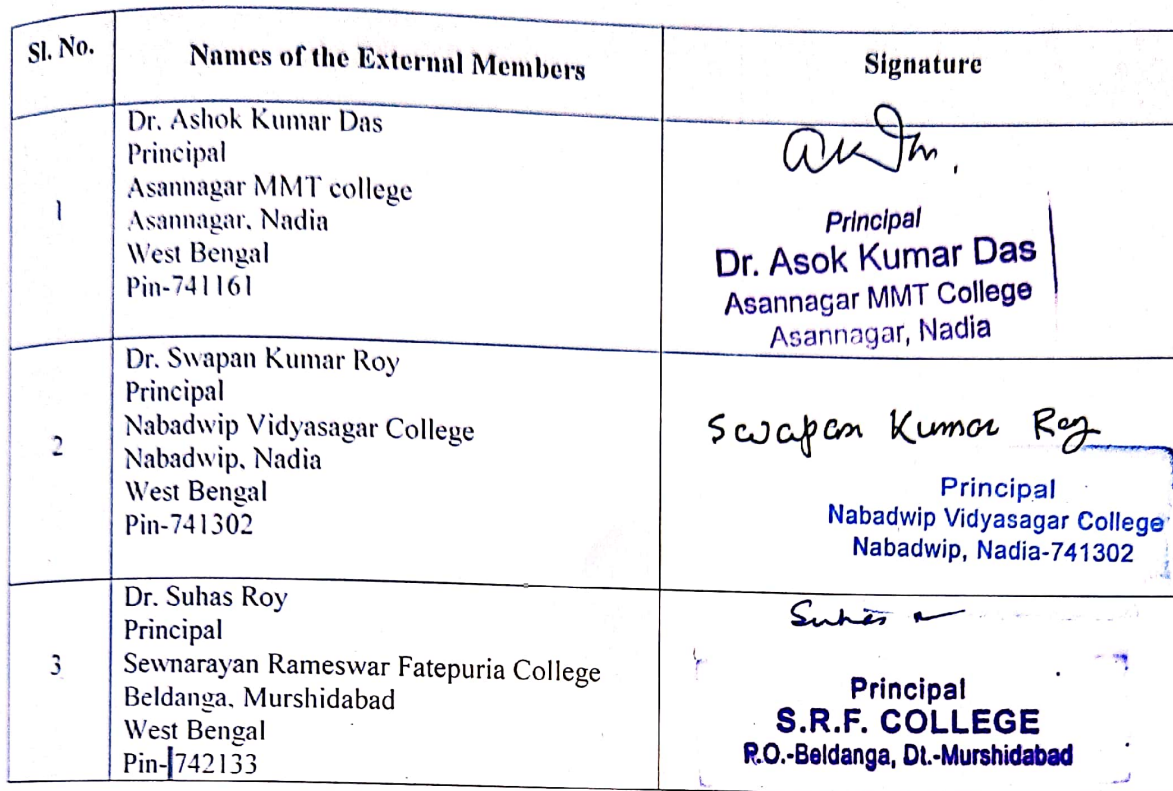 Sl. No.
Names of the External Members
Signature
1
Dr. Ashok Kumar Das
Principal
Asannagar MMT college
Asannagar, Nadia
West Bengal
Pin-741161
Principal
Dr. Asok Kumar Das
Asannagar MMT College
Asannagar, Nadia
2
Dr. Swapan Kumar Roy
Principal
Nabadwip Vidyasagar College
Nabadwip, Nadia
West Bengal
Pin-741302
Swapan Kumar Roy
Principal
Nabadwip Vidyasagar College
Nabadwip, Nadia-741302
3
Dr. Suhas Roy
Principal
Sewnarayan Rameswar Fatepuria College
Beldanga, Murshidabad
West Bengal
Pin-742133
Suhas
Principal
S.R.F. COLLEGE
P.O.-Beldanga, Dt.-Murshidabad